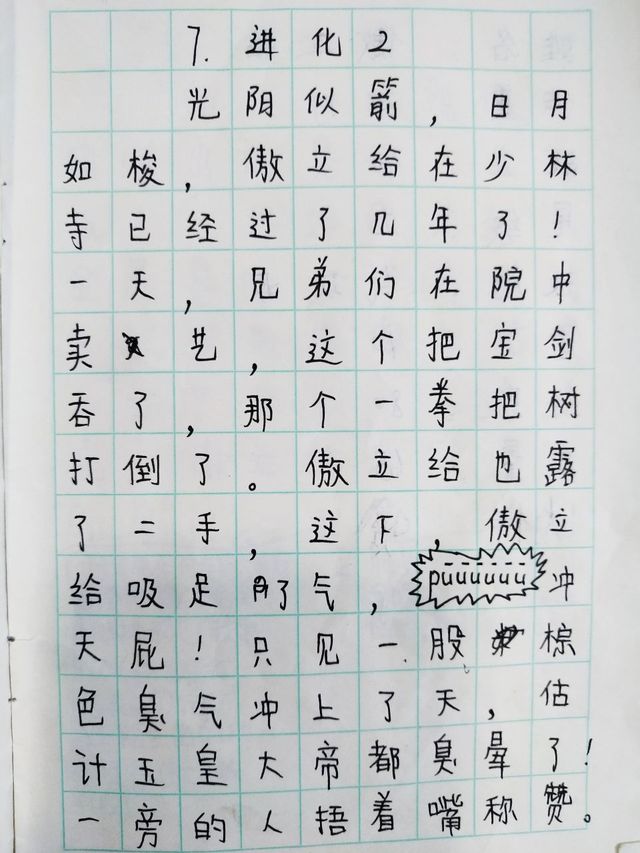 7.进化2
光阳似箭,日月
如梭,傲立给在少林
寺已经过了几年了!
一天,兄弟们在院中
卖艺,这个把宝剑
吞了,那个一拳把树
打倒了。傲立给也露
了二手,这下,傲立
给吸足了气,puuuuuu冲
天屁!只见一股棕
色臭气冲上了天,估
计玉皇大帝都臭晕了!
一旁的人捂着嘴称赞。